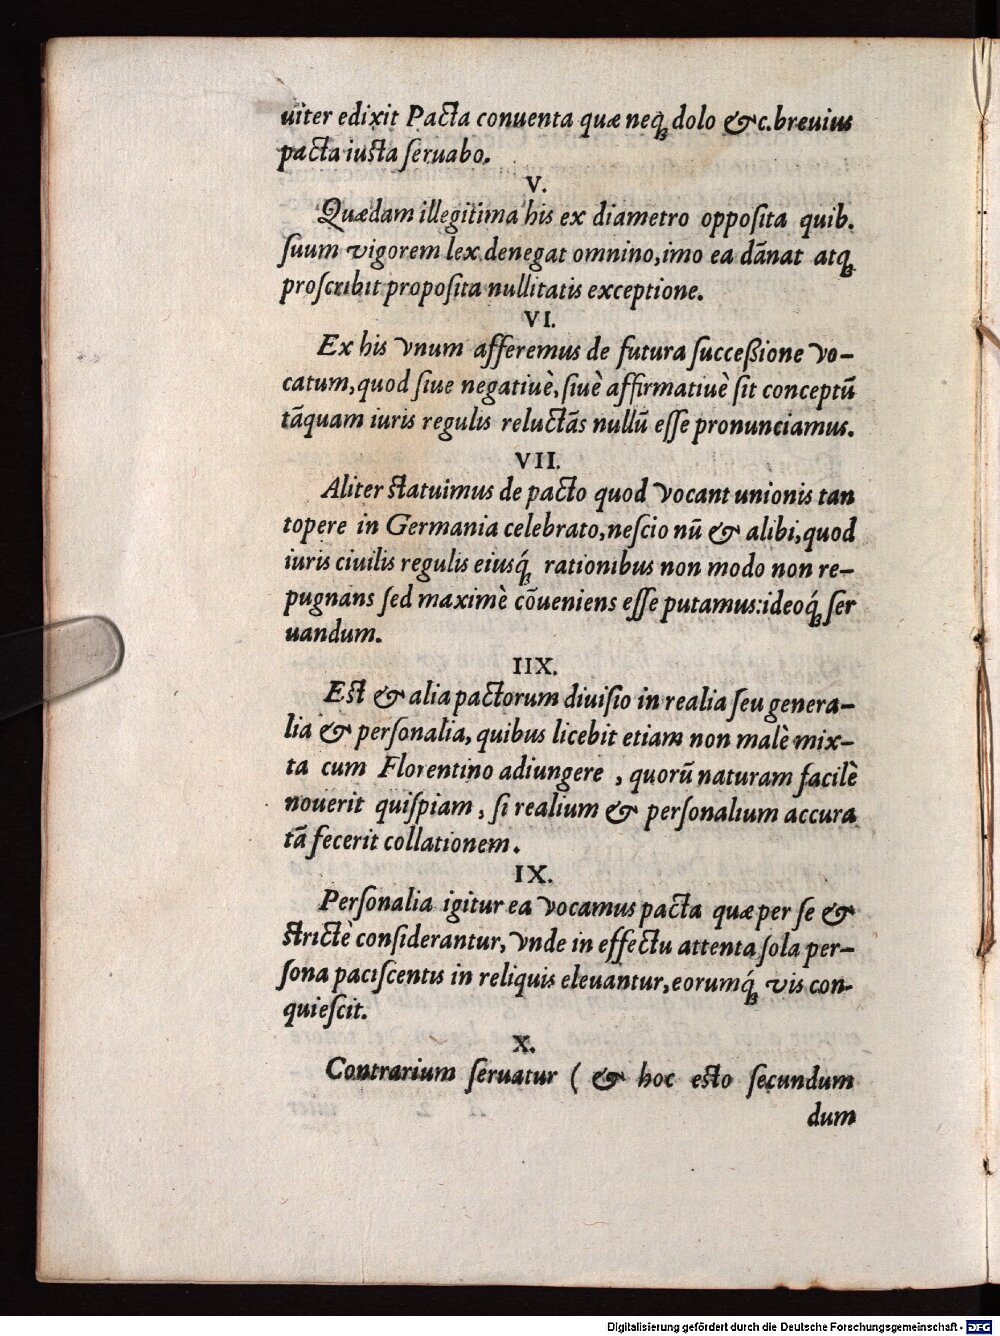 uiter edixit Pacta conuenta quæ neq́; dolo &c. breuius
pacta iusta ſeruabo.
V.
Quædam illegitima his ex diametro oppoſita quib.
ſuum vigorem lex denegat omnino, imo ea dãnat atq;
proſcribit propoſita nullitatis exceptione.
VI.
Ex his vnum afferemus de futura ſucceßione vo-
catum, quod ſiue negatiuè, ſiuè affirmatiuè ſit conceptũ
tãquam iuris regulis reluctãs nullũ eſſe pronunciamus.
VII.
Aliter ſtatuimus de pacto quod vocant unionis tan
topere in Germania celebrato, neſcio nũ & alibi, quod
iuris ciuilis regulis eiusq́; rationibus non modo non re-
pugnans ſed maximè cõueniens eſſe putamus: ideoq́; ſer
uandum.
IIX.
Eſt & alia pactorum diuiſio in realia ſeu genera-
lia & perſonalia, quibus licebit etiam non malè mix-
ta cum Florentino adiungere , quorũ naturam facilè
nouerit quiſpiam , ſi realium & perſonalium accura
tã fecerit collationem.
IX.
Perſonalia igitur ea vocamus pacta quæ per ſe &
ſtrictè conſiderantur, vnde in effectu attenta ſola per-
ſona paciscentis in reliquis eleuantur, eorumq́; vis con-
quieſcit.
X.
Contrarium ſeruatur ( & hoc esto ſecundum
dum
Digitalisierung gefördert durch die Deutsche Forschungsgemeinschaft - DFG